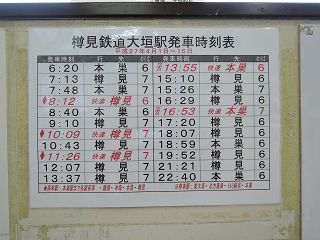 樽見鉄道大垣駅発車時刻表
平成27年4月1日~15日
発車時刻 行先 のりば 発車時刻 行先 のりば
6:20 本巣 6 13:55 快速 本巣 6
7:13 樽見 7 15:15 樽見 6
7:48 本巣 7 16:20 樽見 6
8:12 快速 樽見 6 16:53 快速 本巣 7
8:40 本巣 6 17:25 樽見 6
9:10 樽見 7 18:07 樽見
10:09 快速 樽見 7 18:59 樽見
10:43 樽見 7 20:09 樽見 6
11:26 快速 樽見 7 21:21 樽見 6
12:07 樽見 7 22:40 本巣 6
13:37 樽見 7